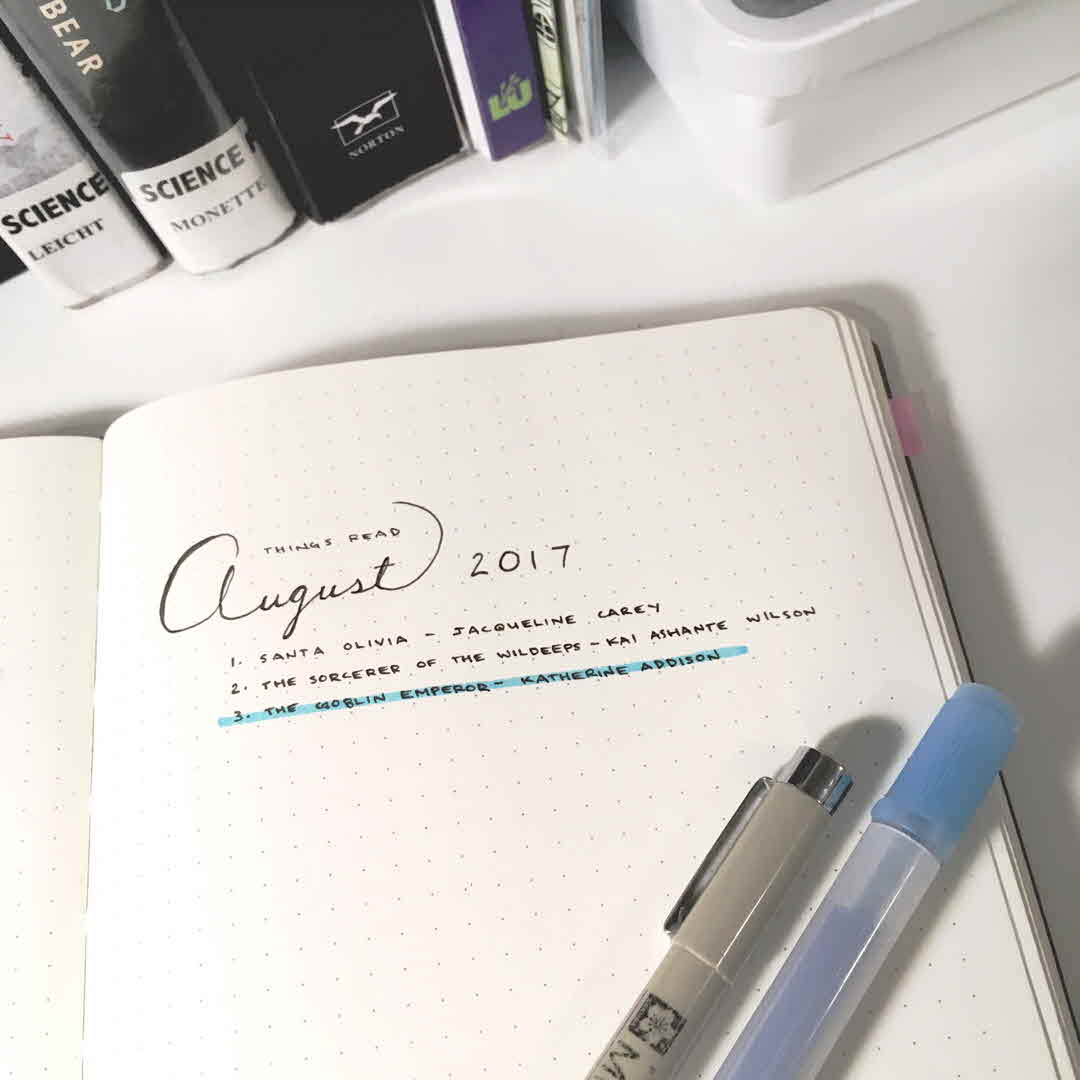 BEAR
SCIENCE
LEICHT
SCIENCE
MONETTE
NORTON
LU
THINGS READ
August 2017
1. SANTA OLIVIA - JACQUELINE CAREY
2. THE SORCERER OF THE WILDEEPS - KAI ASHANTE WILSON
3. THE GOBLIN EMPEROR - KATHERINE ADDISON